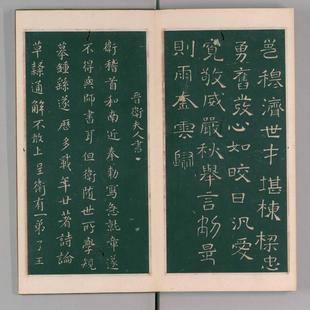 邕穆濟世才堪棟梁忠
勇奮發心如皎日汎愛
寬敬威嚴秋舉言
則雨雲歸
晉衛夫人書
衛稽首和南近奉勑寫急就章遂
不得與師書耳但衛隨世所學規
摹鍾繇遂歷多載年廿著詩論
草隸通解不敢上呈衛有一弟子王